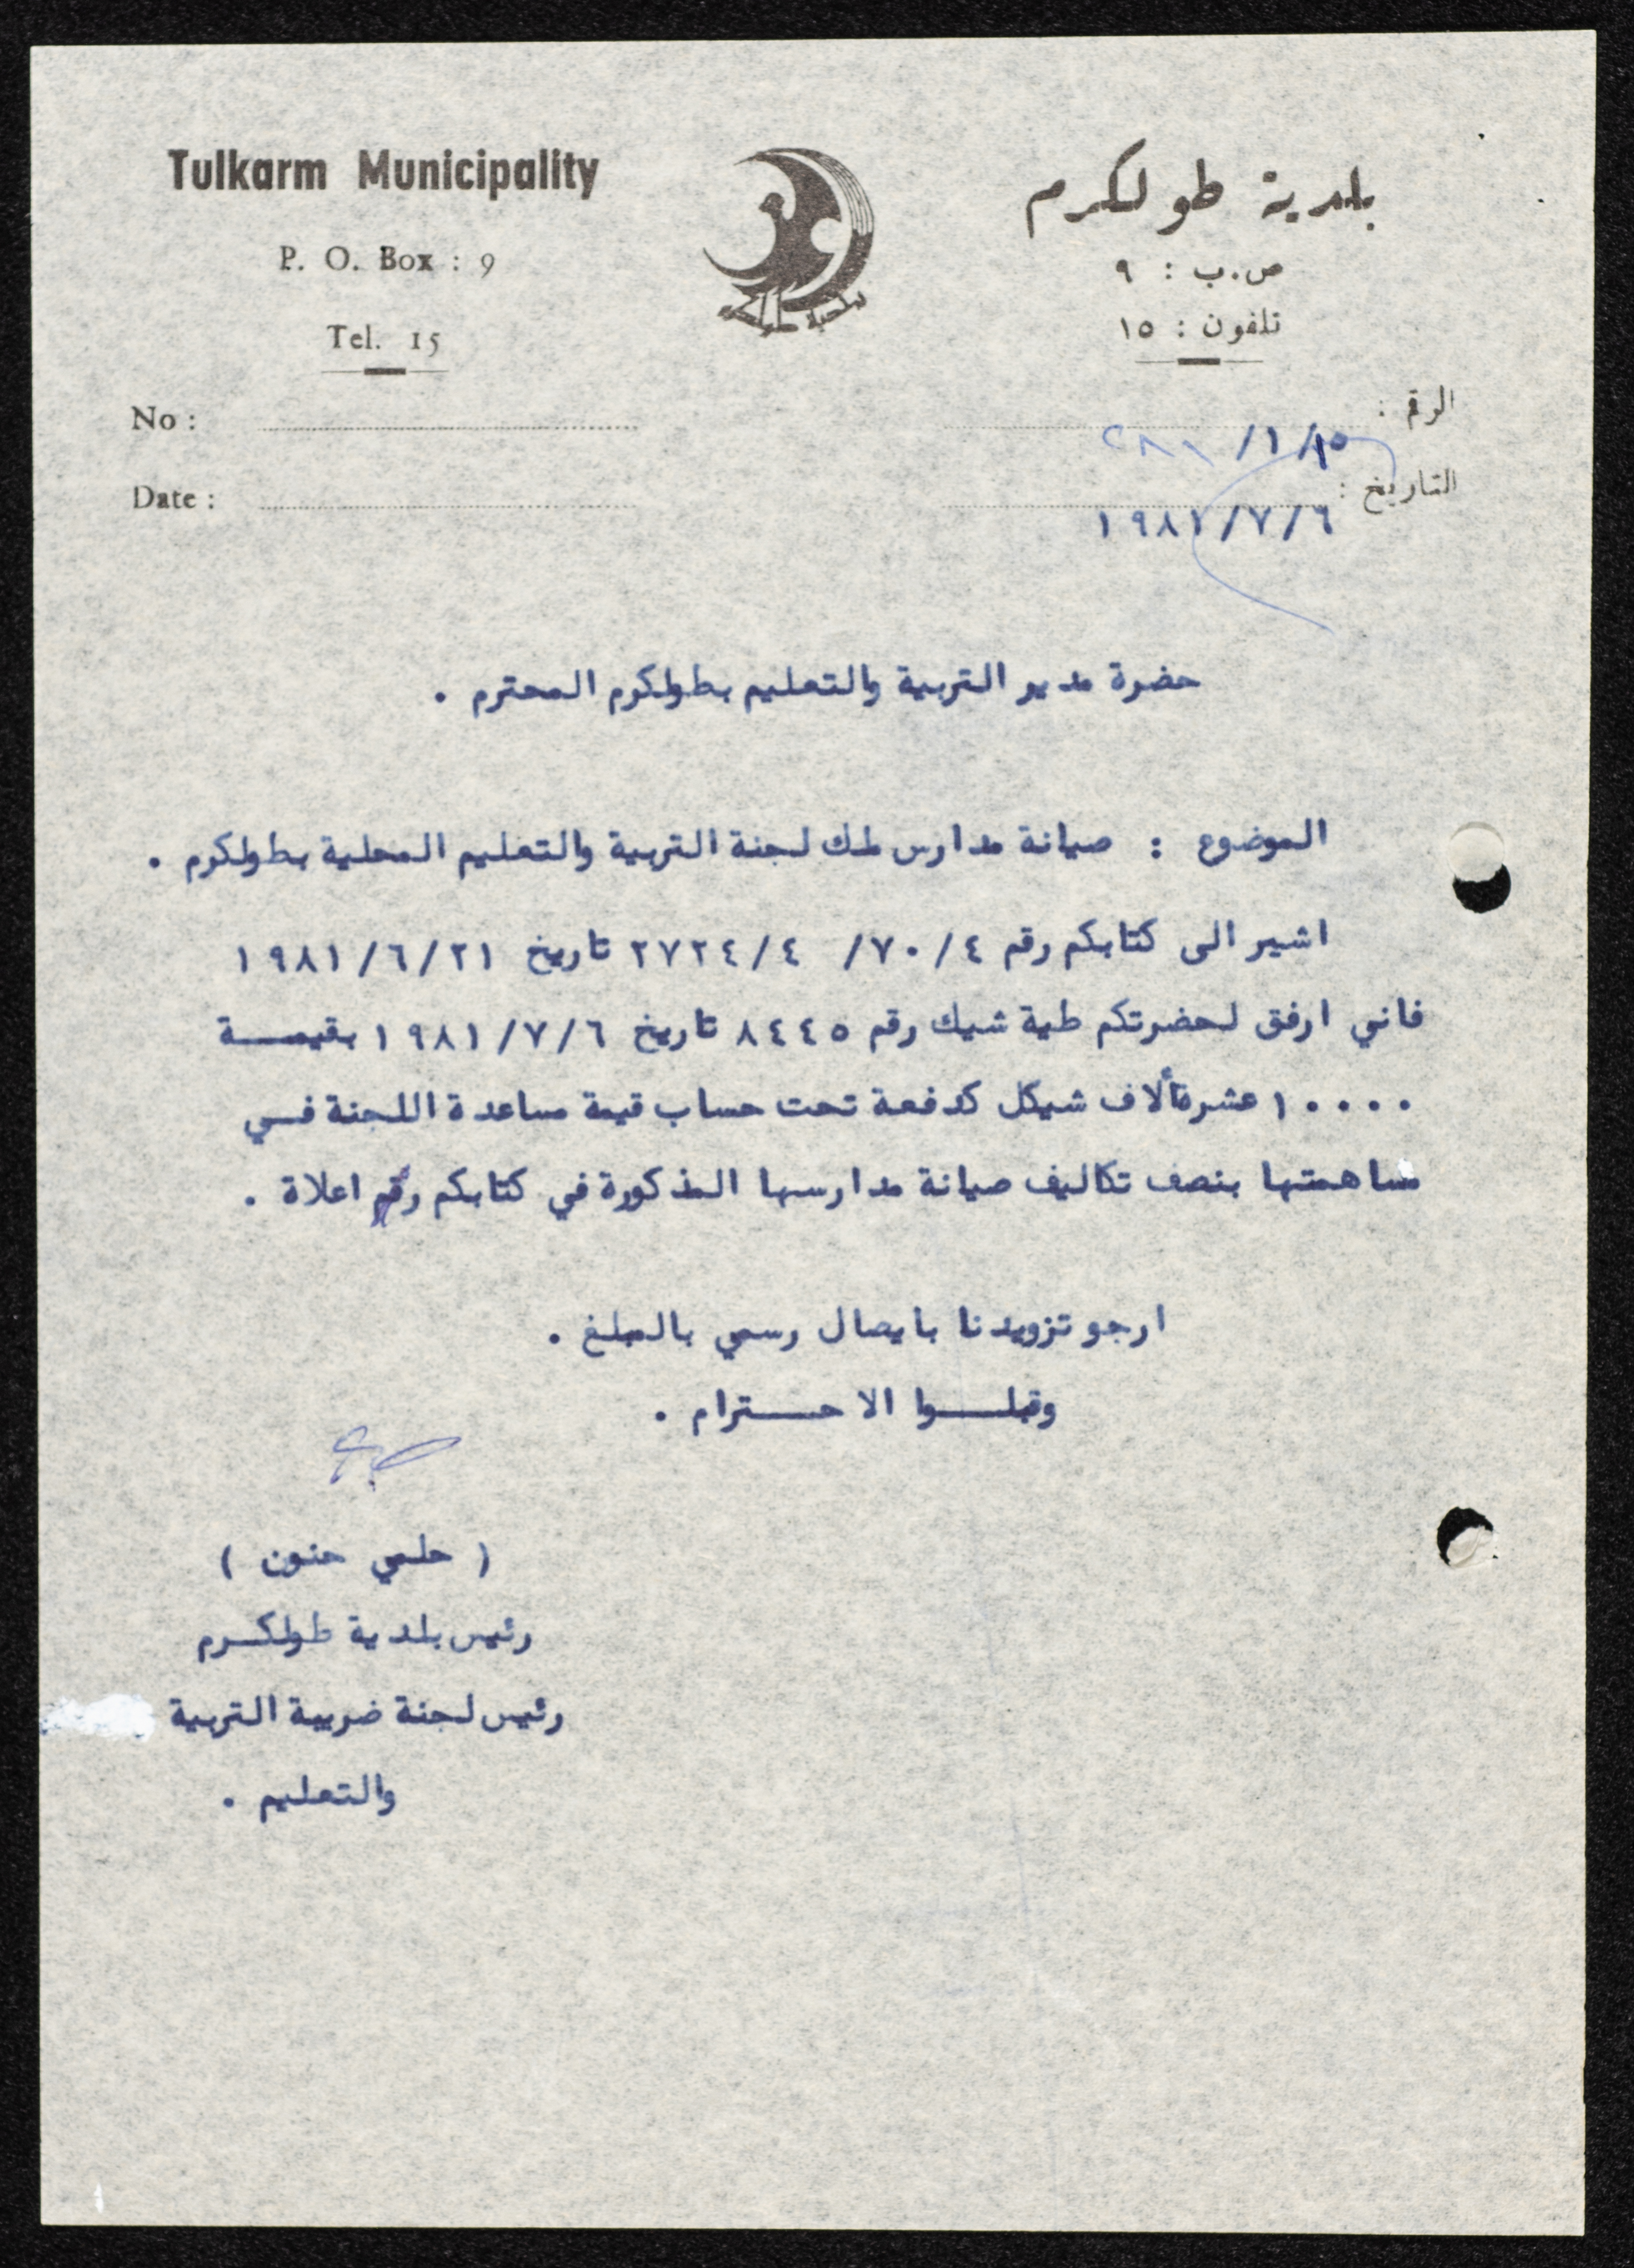 Tulkarm Municipality
P. O. Box : 9
Tel. 15
No :
Date :
بلدية طولكرم
ص.ب : ٩
تلفون : ١٥
الرقم :
التاريخ : ١٩٨١/٧/٦
بلدية طولكرم
حضرة مدير التربية والتعليم بطولكرم المحترم .
الموضوع : صيانة مدارس ملك لجنة التربية والتعليم المحلية بطولكرم .
اشير الى كتابكم رقم ٤/٧٠/ ٢٧٢٤/٤ تاريخ ١٩٨١/٦/٢١
فاني ارفق لحضرتكم طية شيك رقم ٨٤٤٥ تاريخ ١٩٨١/٧/٦ بقيمـــة
١٠٠٠٠ عشرة ألاف شيكل كدفعة تحت حساب قيمة مساعدة اللجنة فــي
مساهمتها بنصف تكاليف صيانة مدارسها المذكورة في كتابكم رقم اعلاة .
ارجو تزويدنا بايصال رسمي بالمبلغ .
وقبلـــوا الاحـــترام .
( حلمي حنون )
رئيس بلدية طولكـرم
رئيس لجنة ضريبة التربية
والتعليم .